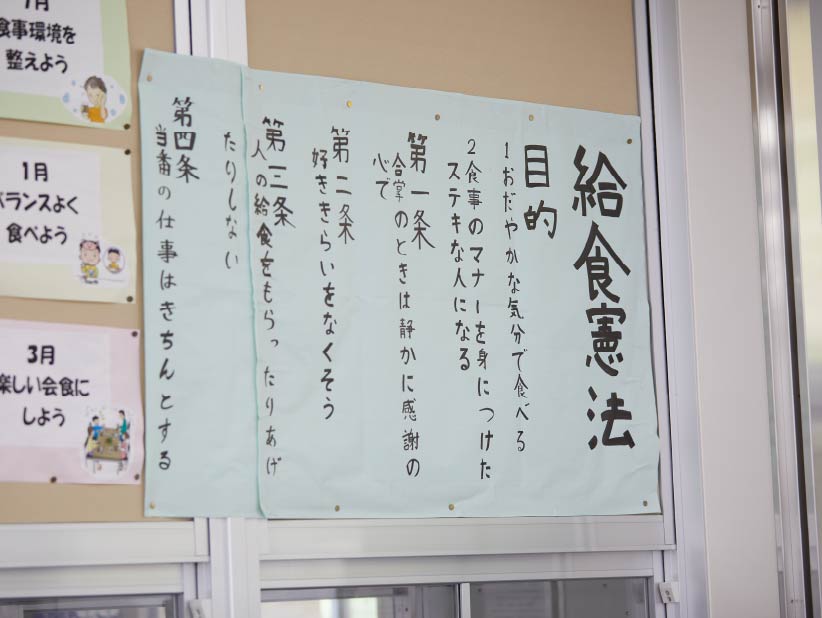 給食憲法
目的
1おだやかな気分で食べる
2食事のマナーを身につけた
ステキな人になる
第一条
合掌のときは静かに感謝の
心で
第二条
好ききらいをなくそう
第三条
人の給食をもらったりあげ
たりしない
第四条
当番の仕事はきちんとする
食事環境を
整えよう
1月
バランスよく
食べよう
3月
楽しい会食に
しよう